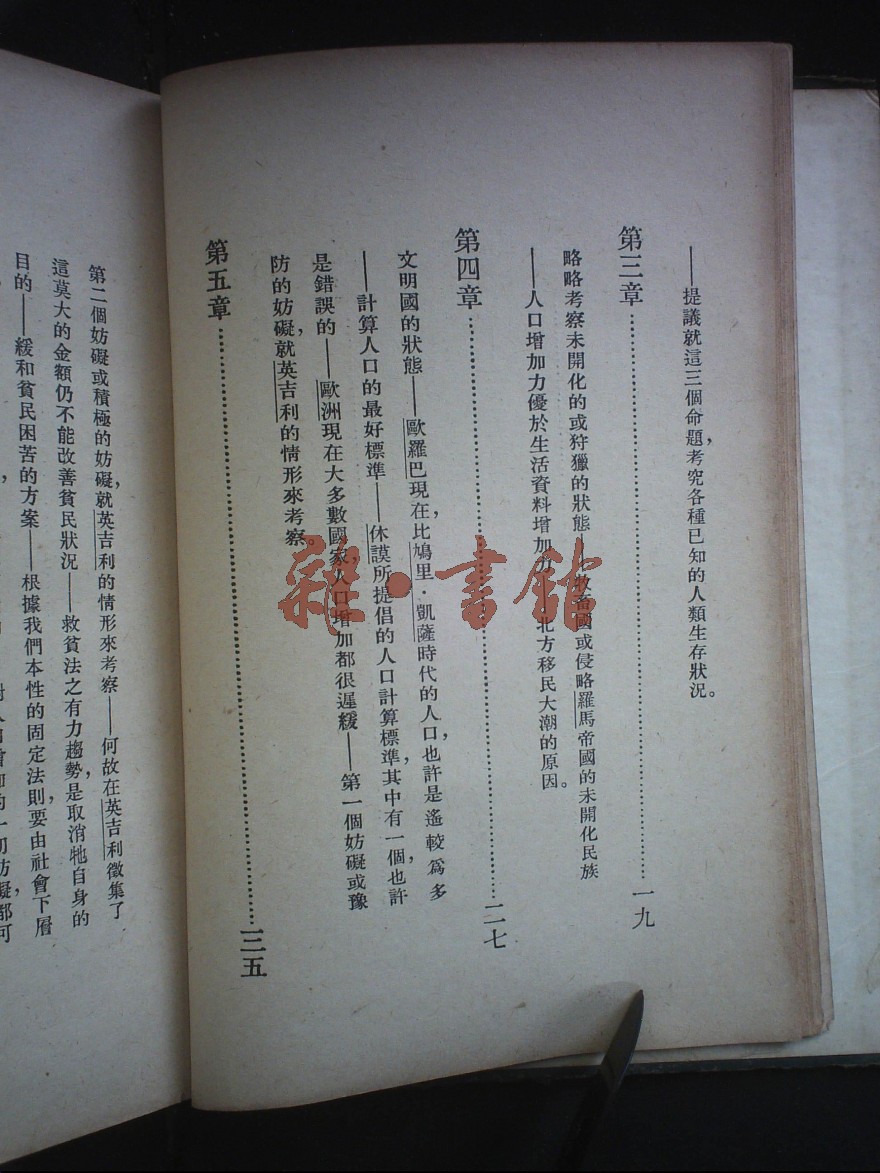 ——提議就這三個命題，考究各種已知的人類生存狀況。
第三章……一九
略略考察未開化的或狩獵的狀態——牧畜國或侵略羅馬帝國的未開化民族
——人口增加力優於生活資料增加力——北方移民大潮的原因。
第四章……二七
文明國的狀態——歐羅巴現在，比鳩里·凱薩時代的人口，也許是遙較爲多
——計算人口的最好標準——休謨所提倡的人口計算標準，其中有一個，也許
是錯誤的——歐洲現在大多數國家，人口增加都很遲緩——第一個妨礙或豫
防的妨礙，就英吉利的情形來考察。
第五章……三五
第二個妨礙或積極的妨礙，就英吉利的情形來考察——何故在英吉利徵集了
這莫大的金額仍不能改善貧民狀況——救貧法之有力趨勢，是取消牠自身的
目的——緩和貧民困苦的方案——根據我們本性的固定法則，要由社會下層
雜·書館